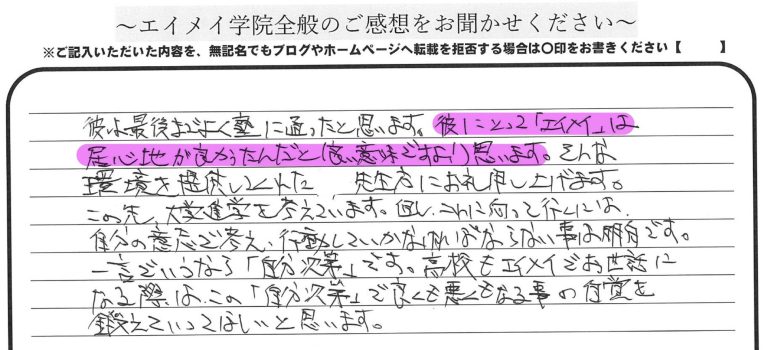 ～エイメイ学院全般のご感想をお聞かせください～
※ご記入いただいた内容を、無記名でもブログやホームページへ転載を拒否する場合は〇印をお書きください【　　　】
彼は最後までよく塾に通ったと思います。彼にとって「エイメイ」は
居心地が良かったんだと(良い意味ですよ!)思います。そんな
環境を提供してくれた　先生方にお礼申し上げます。
この先、大学進学を考えています。但し、これに向って行くには、
自分の意志で考え、行動していかなければならない事は明白です。
一言でいうなら「自分次第」です。高校もエイメイでお世話に
なる際は、この「自分次第」で良くも悪くもなる事の自覚を
鍛えていってほしいと思います。